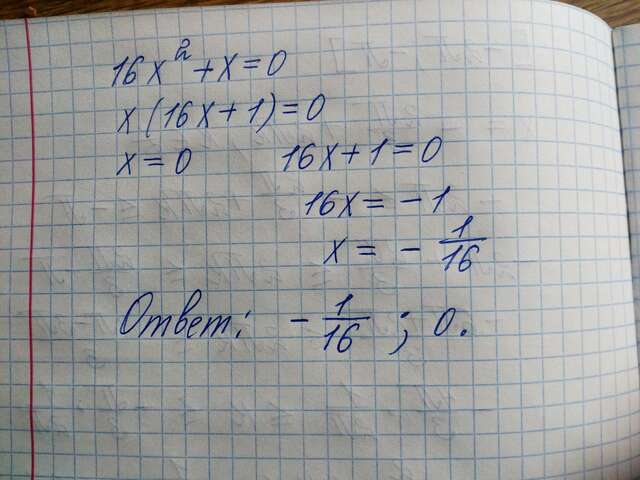 16x² + x = 0
x(16x + 1) = 0
x = 0 16x + 1 = 0
16x = -1
x = - 1/16
Ответ: - 1/16 ; 0.